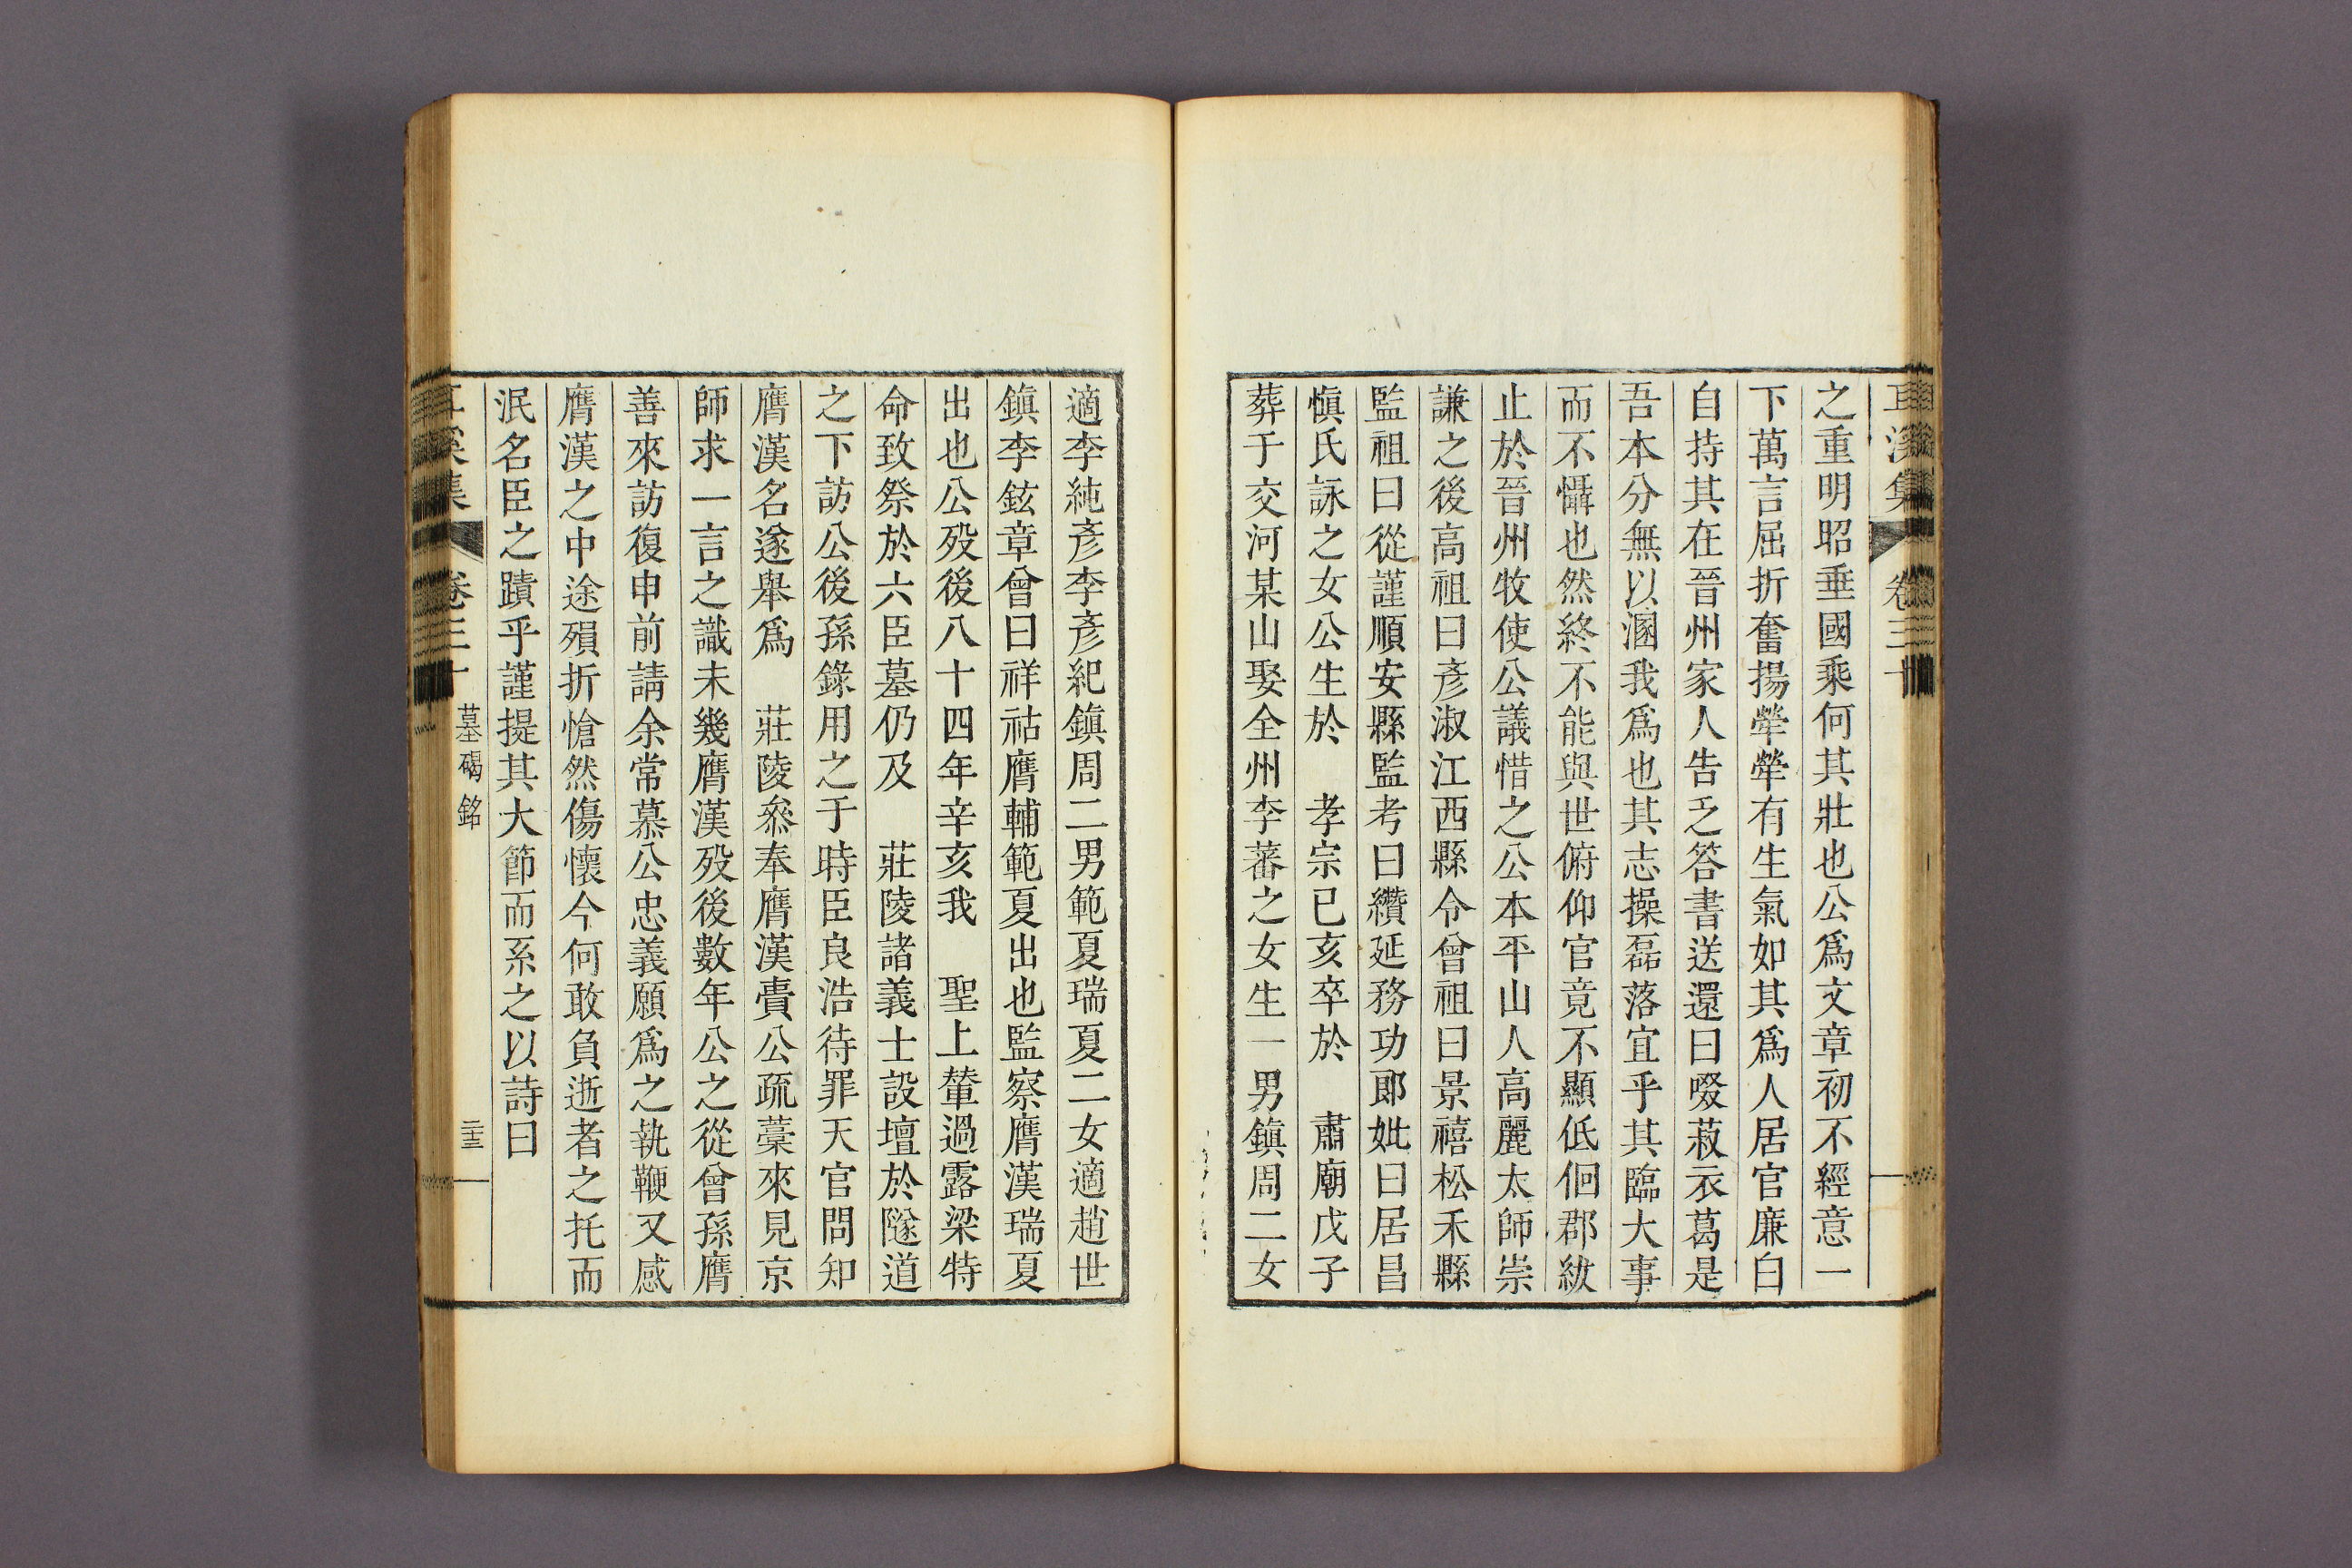 耳溪集 卷三十
之重明昭垂國乘何其壯也公爲文章初不經意一
下萬言屈折奮揚犖犖有生氣如其爲人居官廉白
自持其在晉州家人告乏答書送還曰啜菽衣葛是
吾本分無以溷我爲也其志操磊落宜乎其臨大事
而不懾也然終不能與世俯仰官竟不顯低佪郡紱
止於晉州牧使公議惜之公本平山人高麗太師崇
謙之後高祖曰彥淑江西縣令曾祖曰景禧松禾縣
監祖曰從謹順安縣監考曰纘延務功郞妣曰居昌
愼氏詠之女公生於 孝宗己亥卒於 肅廟戊子
葬于交河某山娶全州李蕃之女生一男鎭周二女
適李純彥李彥紀鎭周二男範夏瑞夏二女適趙世
鎭李鉉章曾曰祥祜膺輔範夏出也監察膺漢瑞夏
出也公歿後八十四年辛亥我 聖上輦過露梁特
命致祭於六臣墓仍及 莊陵諸義士設壇於隧道
之下訪公後孫錄用之于時臣良浩待罪天官問知
膺漢名遂舉爲 莊陵叅奉膺漢賷公疏藁來見京
師求一言之識未幾膺漢歿後數年公之從曾孫膺
善來訪復申前請余常慕公忠義願爲之執鞭又感
膺漢之中途殞折愴然傷懷今何敢負逝者之托而
泯名臣之蹟乎謹提其大節而系之以詩曰
耳溪集 卷三十 墓碣銘 二十三